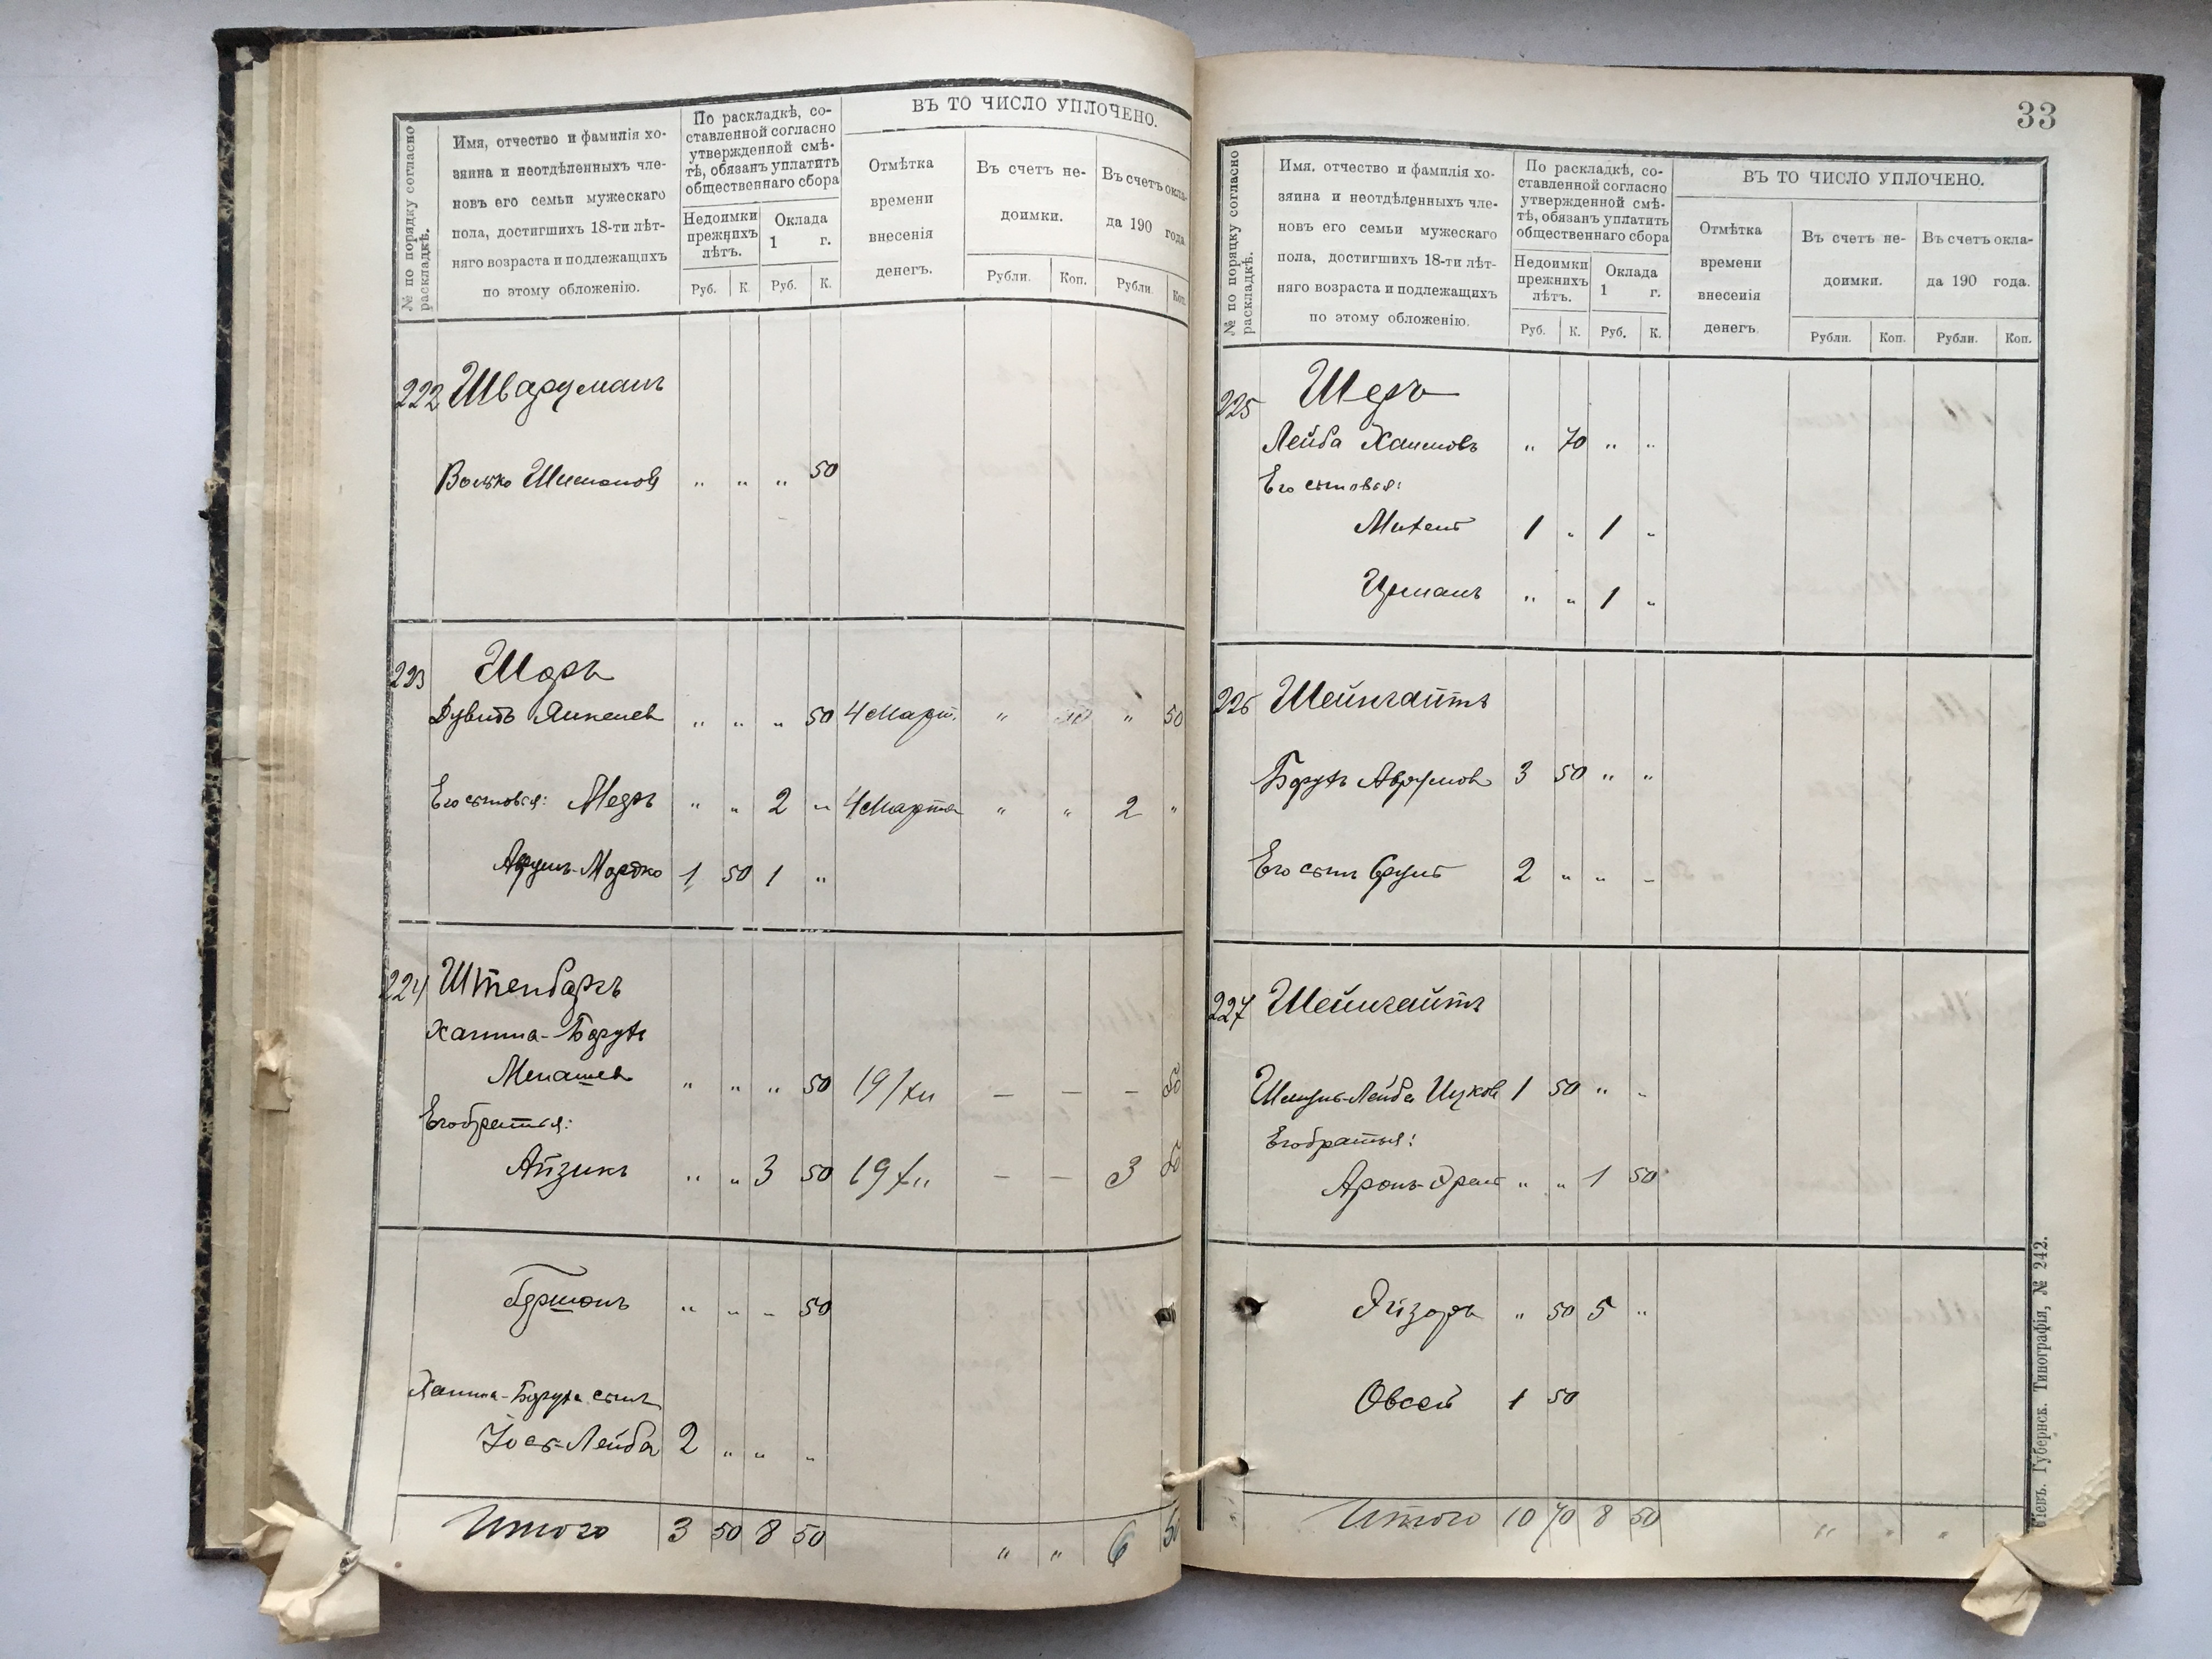 № по порядку согласно раскладкѣ.
Имя, отчество и фамилія хо-
зяина и неотдѣленныхъ чле-
новъ его семьи мужескаго
пола, достигшихъ 18-ти лѣт-
няго возраста и подлежащихъ
по этому обложенію.
По раскладкѣ, со-
ставленной согласно
утвержденной смѣ-
тѣ, обязанъ уплатить
общественнаго сбора
Недоимки прежнихъ лѣтъ.
Оклада 1 г.
Руб. К. Руб. К.
ВЪ ТО ЧИСЛО УПЛОЧЕНО.
Отмѣтка времени внесенія денегъ.
Въ счетъ не-
доимки.
Въ счетъ окла-
да 190 года
Рубли. Коп. Рубли. Коп.
222 Шварцманъ
Волько Шимонов „ „ „ 50
223 Шоръ
Дувидъ Янкелев „ „ „ 50 4 Март. „ „ 50
Его сыновья: Меэръ „ „ 2 „ 4 Марта „ „ 2 „
Мордко 1 50 1 „
224 Штенбаргъ
Ханина-Борухъ
Менашев „ „ „ 50 19/XII — — — 50
Его братья:
Айзикъ „ „ 3 50 19/XII — — 3 50
Гершонъ „ „ „ 50
Ханина-Боруха сынъ
Лейба 2 „ „ „
Итого 3 50 8 50 „ „ 6 50
33
№ по порядку согласно раскладкѣ.
Имя, отчество и фамилія хо-
зяина и неотдѣленныхъ чле-
новъ его семьи мужескаго
пола, достигшихъ 18-ти лѣт-
няго возраста и подлежащихъ
по этому обложенію.
По раскладкѣ, со-
ставленной согласно
утвержденной смѣ-
тѣ, обязанъ уплатить
общественнаго сбора
Недоимки прежнихъ лѣтъ.
Оклада 1 г.
Руб. К. Руб. К.
ВЪ ТО ЧИСЛО УПЛОЧЕНО.
Отмѣтка времени внесенія денегъ.
Въ счетъ не-
доимки.
Въ счетъ окла-
да 190 года.
Рубли. Коп. Рубли. Коп.
225 Шеръ
Лейба Хаимовъ „ 70 „ „
Его сыновья:
Михель 1 „ 1 „
„ „ 1 „
226 Шейнгайтъ
Борухъ Аврумов 3 50 „ „
Его сынъ Сруль 2 „ „ „
227 Шейнгайтъ
Лейба Ицков 1 50 „ „
Его братья:
Аронъ „ „ 1 50
Эйзоръ „ 50 5 „
Овсей 1 50
Итого 10 70 8 50 „ „ „
Кіевъ. Губернск. Типографія, № 242.